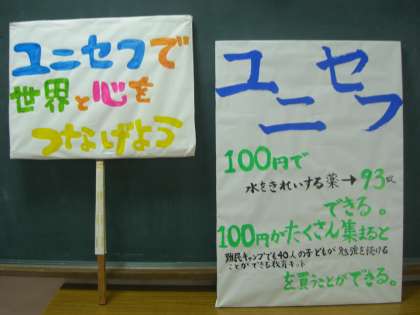 ユニセフで
世界と心を
つなげよう
ユニセフ
100円で
水をきれいする薬→93錠
できる。
100円がたくさん集まると
難民キャンプでも40人の子どもが勉強を続ける
ことができる教育キット
を買うことができる。